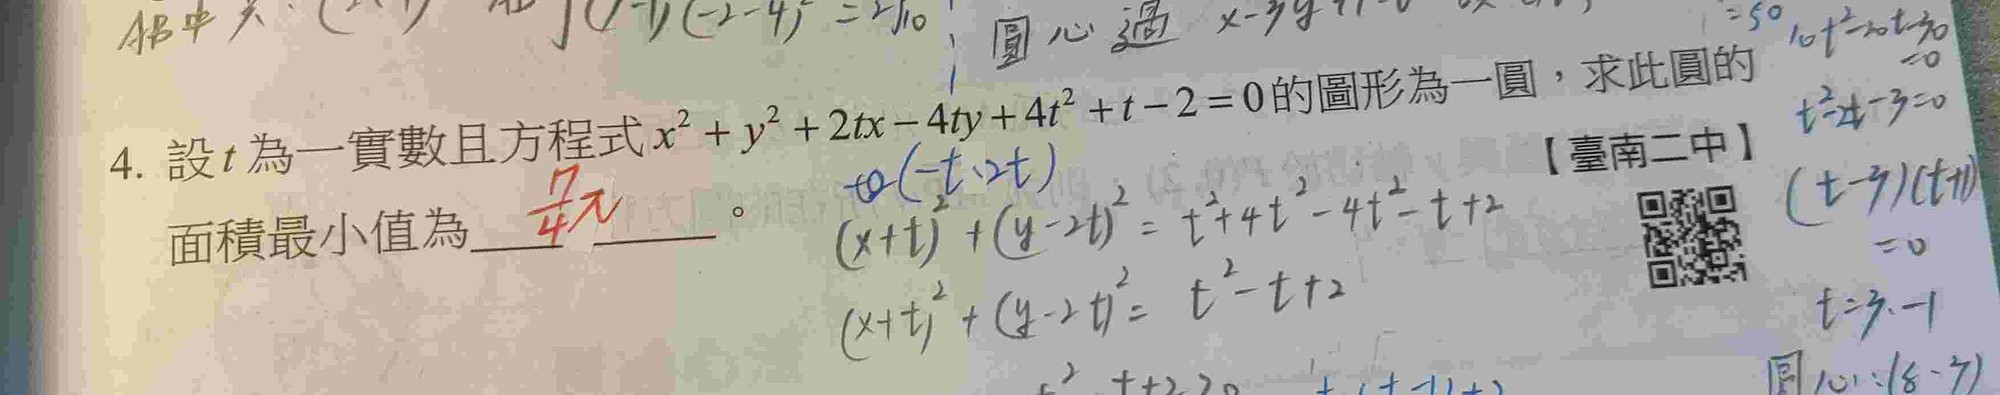 AB中
(-2-4)² = 2√10
圓心過 x-3y
=50
10t²-20t-30
=0
4. 設t為一實數且方程式x²+y²+2tx-4ty+4t²+t-2=0的圖形為一圓，求此圓的
面積最小值為 7/4 π 。
【臺南二中】
(-t、2t)
(x+t)²+(y-2t)²= t²+4t²-4t²-t+2
(x+t)²+(y-2t)²= t²-t+2
t²-2t-3=0
(t-3)(t+1)
=0
t=3、-1
圓心:(8、7)